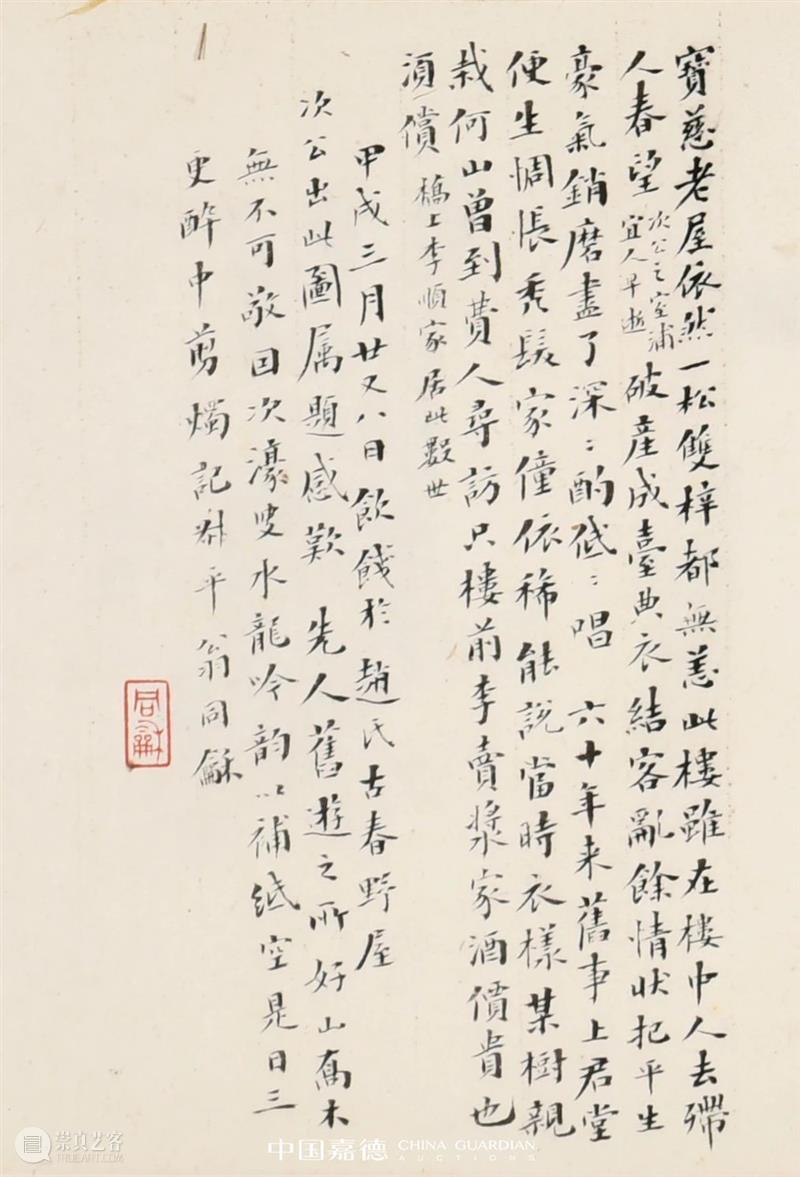 寶慈老屋依然一松雙梓都無恙此樓雖在樓中人去
人春望次公之室浦宜人早逝破產成臺典衣結客亂餘情狀把平生
豪氣銷磨盡了深〻酌低〻唱 六十年来舊事上君堂
便生惆悵禿鬀家僮依稀能說當時衣樣某樹親
栽何山曾到費人尋訪只樓前李賣漿家酒價貴也
須償橋上李順家居此數世
甲戌三月廿又八日飲餞於趙氏古春野屋
次公出此圖属題感歎 先人舊遊之所好山喬木
無不可敬因次濠叟水龍吟韵以補紙空是日三
更醉中剪燭記 平翁同龢
同龢
中国嘉德 CHINA GUARDIAN AUCTIONS
崇真艺客